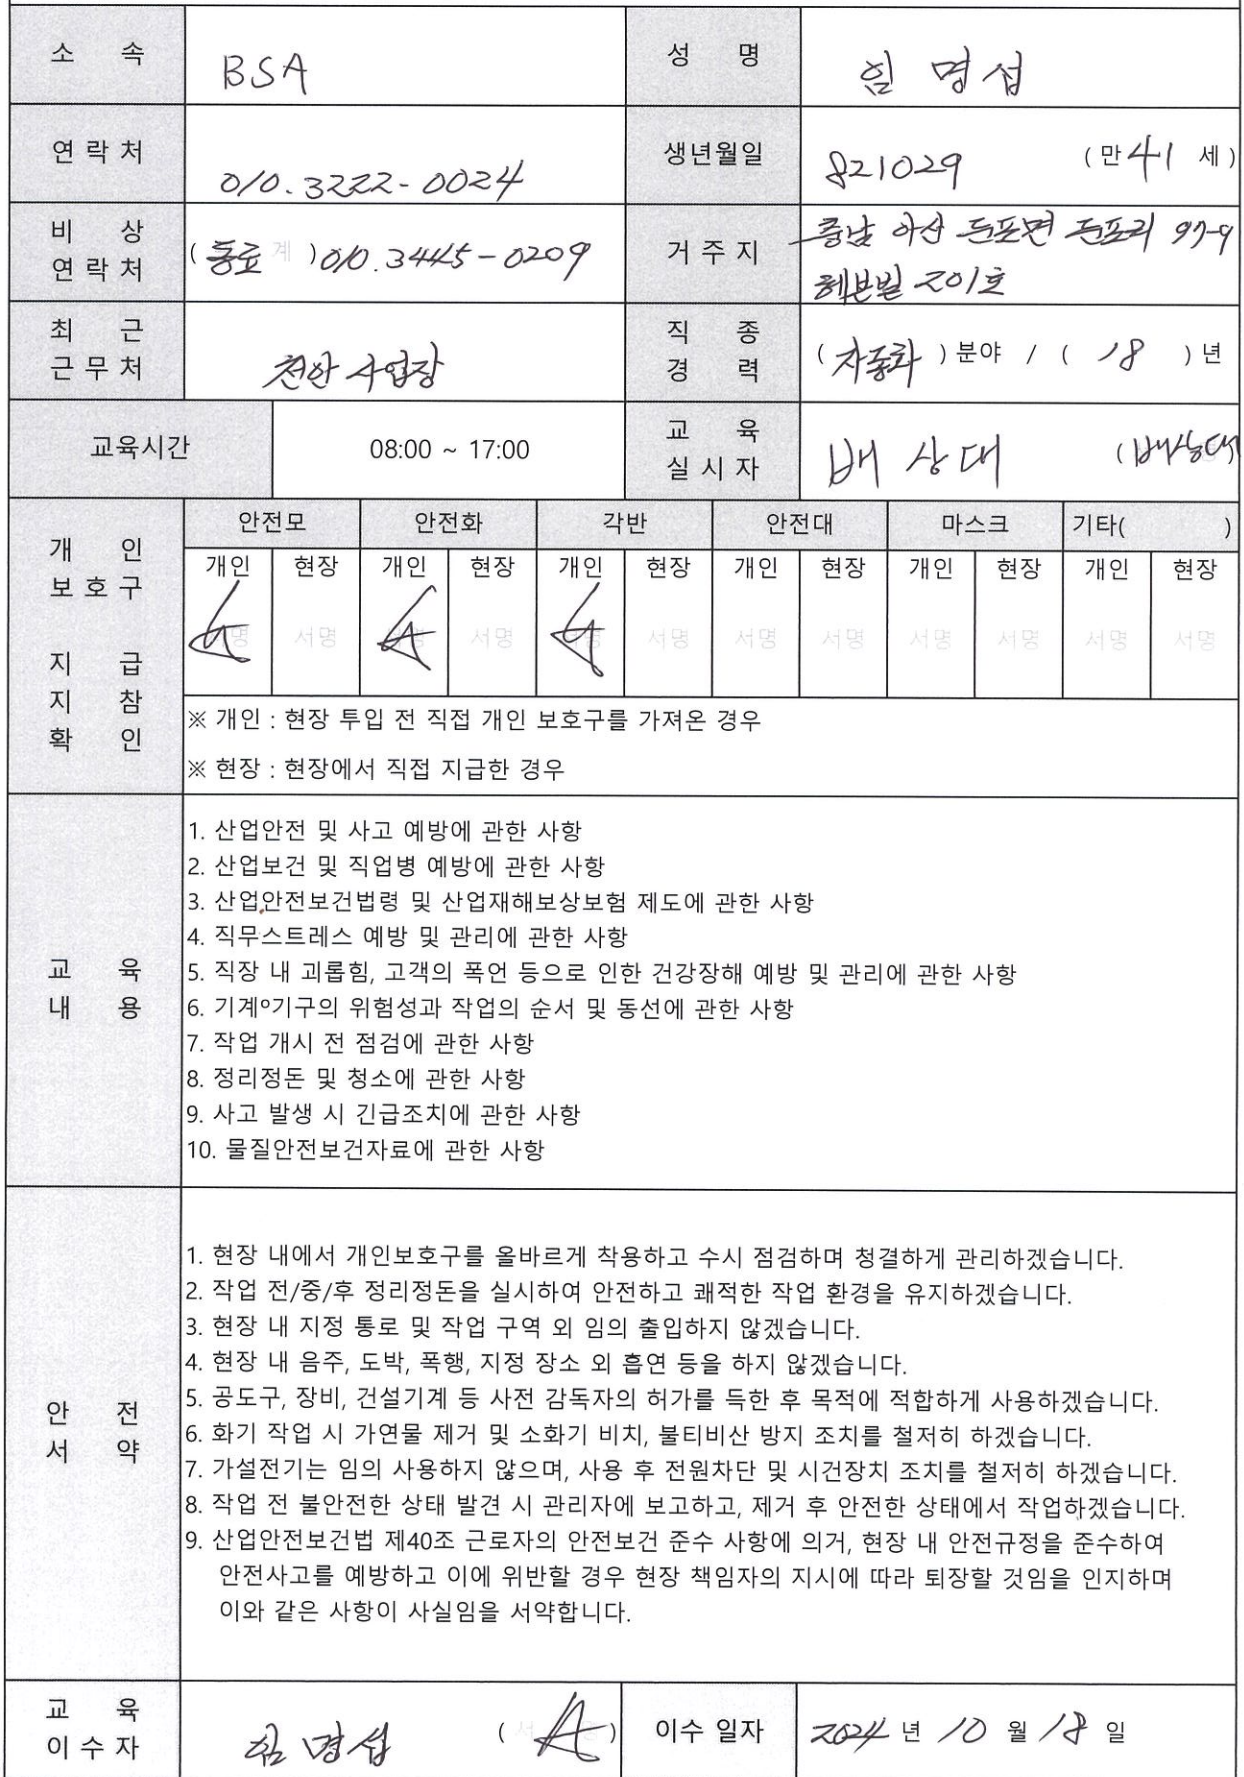 소 속 BSA 성 명 임 명섭
연 락 처 010.3222-0024 생년월일 821029 ( 만 41 세 )
비 상
연 락 처 ( 동료 계 ) 010.3445-0209 거 주 지 충남 아산 둔포면 둔포리 97-9
헤븐빌 201호
최 근
근 무 처 천안 사업장 직 종
경 력 ( 자동화 ) 분야 / ( 18 ) 년
교육시간 08:00 ~ 17:00 교 육
실 시 자 배 상 대 (배상대)
개 인
보 호 구
지 급
지 참
확 인
안전모 안전화 각반 안전대 마스크 기타( )
개인 현장 개인 현장 개인 현장 개인 현장 개인 현장 개인 현장
서명 서명 서명 서명 서명 서명 서명 서명 서명 서명 서명 서명
※ 개인 : 현장 투입 전 직접 개인 보호구를 가져온 경우
※ 현장 : 현장에서 직접 지급한 경우
교 육
내 용
1. 산업안전 및 사고 예방에 관한 사항
2. 산업보건 및 직업병 예방에 관한 사항
3. 산업안전보건법령 및 산업재해보상보험 제도에 관한 사항
4. 직무스트레스 예방 및 관리에 관한 사항
5. 직장 내 괴롭힘, 고객의 폭언 등으로 인한 건강장해 예방 및 관리에 관한 사항
6. 기계º기구의 위험성과 작업의 순서 및 동선에 관한 사항
7. 작업 개시 전 점검에 관한 사항
8. 정리정돈 및 청소에 관한 사항
9. 사고 발생 시 긴급조치에 관한 사항
10. 물질안전보건자료에 관한 사항
안 전
서 약
1. 현장 내에서 개인보호구를 올바르게 착용하고 수시 점검하며 청결하게 관리하겠습니다.
2. 작업 전/중/후 정리정돈을 실시하여 안전하고 쾌적한 작업 환경을 유지하겠습니다.
3. 현장 내 지정 통로 및 작업 구역 외 임의 출입하지 않겠습니다.
4. 현장 내 음주, 도박, 폭행, 지정 장소 외 흡연 등을 하지 않겠습니다.
5. 공도구, 장비, 건설기계 등 사전 감독자의 허가를 득한 후 목적에 적합하게 사용하겠습니다.
6. 화기 작업 시 가연물 제거 및 소화기 비치, 불티비산 방지 조치를 철저히 하겠습니다.
7. 가설전기는 임의 사용하지 않으며, 사용 후 전원차단 및 시건장치 조치를 철저히 하겠습니다.
8. 작업 전 불안전한 상태 발견 시 관리자에 보고하고, 제거 후 안전한 상태에서 작업하겠습니다.
9. 산업안전보건법 제40조 근로자의 안전보건 준수 사항에 의거, 현장 내 안전규정을 준수하여
안전사고를 예방하고 이에 위반할 경우 현장 책임자의 지시에 따라 퇴장할 것임을 인지하며
이와 같은 사항이 사실임을 서약합니다.
교 육
이 수 자 임 명섭 ( 서 ) 이수 일자 2024 년 10 월 18 일